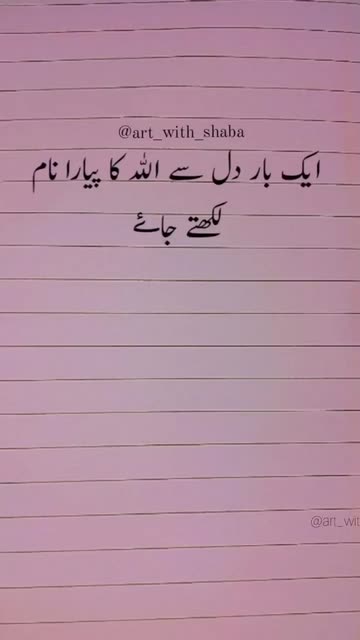 @art_with_shaba
ایک بار دل سے اللہ کا پیارا نام
لکھتے جائے
@art_wit